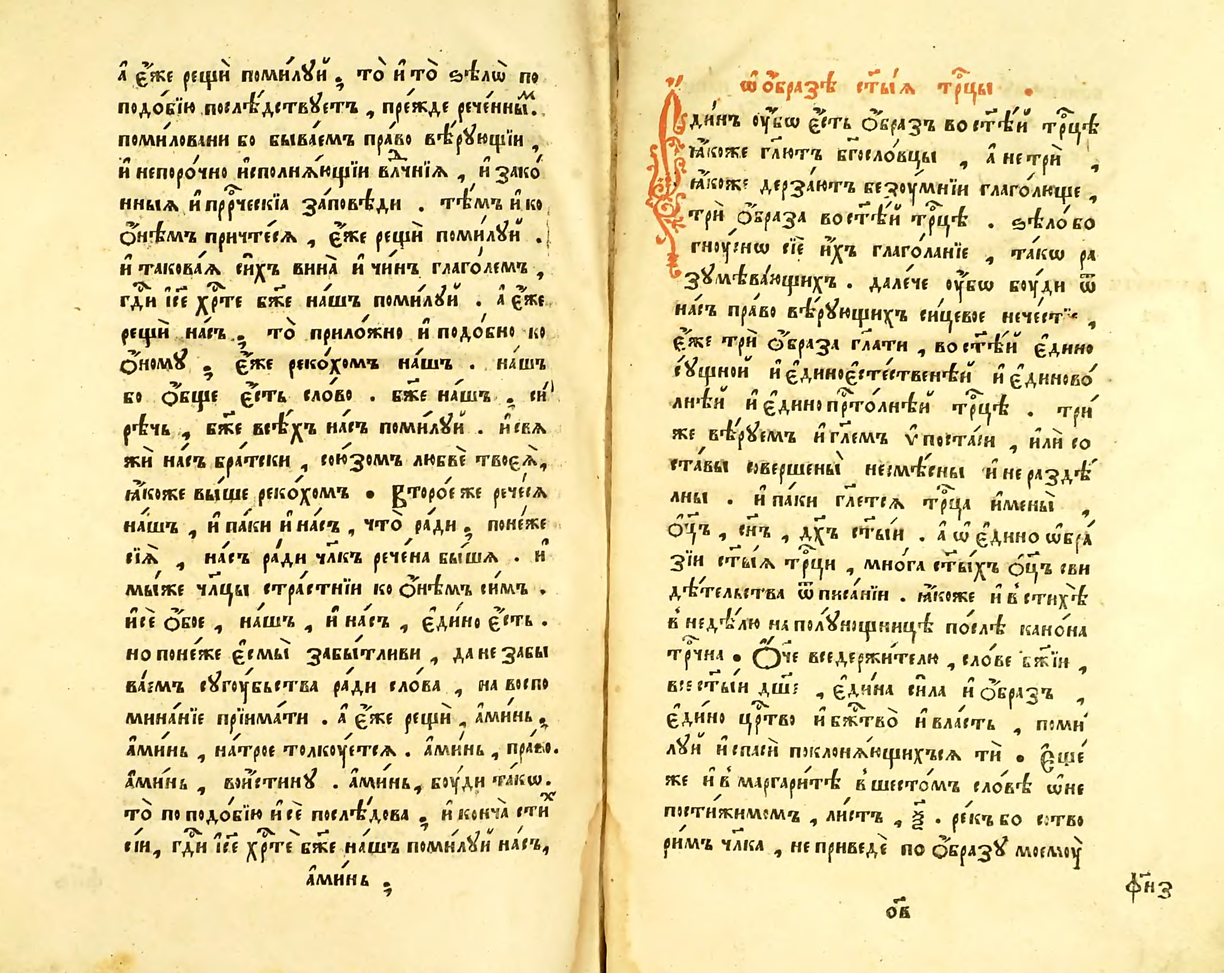 А҆ є҆́же рещѝ поми́лꙋй , то̀ и҆ то̀ ѕѣ́лѡ по
подо́бїю послѣ́дствꙋетъ , пре́жде рече́нным.
поми́ловани бо быва́емъ пра́во вѣ́рꙋющїи ,
и҆ непоро́чно и҆сполнѧ́ющїи влⷣчнїѧ , и҆ зако́
нныѧ и҆ прⷪ҇рческїѧ за́повѣди . тѣ́мъ и҆ ко
ѻ҆́нѣмъ причте́сѧ , є҆́же рещѝ поми́лꙋй .
и҆ такова́ѧ си́хъ вина̀ и҆ чи́нъ глаго́лемъ ,
гдⷭ҇и і҆се хрⷭ҇те бж҃е на́шъ поми́лꙋй . а҆ є҆́же
рещѝ на́съ , то̀ прило́жно и҆ подо́бно ко
ѻ҆́номꙋ , є҆́же реко́хомъ на́шъ . на́шъ
бо ѻ҆́бще є҆́сть сло́во . бж҃е на́шъ , си́
рѣчь , бж҃е всѣ́хъ на́съ поми́лꙋй . и҆ свѧ
жѝ на́съ бра́тски , сою́зомъ любвѐ твоеѧ̀ ,
ꙗ҆́коже вы́ше реко́хомъ . Второ́е же рече́сѧ
на́шъ , и҆ па́ки и҆ на́съ , что̀ ра́ди , поне́же
сїѧ̀ , на́съ ра́ди чл҃къ рече́на бы́шѧ . и҆
мы́же чл҃цы стра́стнїи ко ѻ҆́нѣмъ си́мъ .
и҆ сѐ ѻ҆́бое , на́шъ , и҆ на́съ , є҆ди́но є҆́сть .
но поне́же є҆смы̀ забы́тливи , да не забы
ва́емъ сꙋгꙋ́бьства ра́ди сло́ва , на воспо
мина́нїе прїима́ти . а҆ є҆́же рещѝ , а҆ми́нь ,
а҆ми́нь , на́трое толкꙋ́етсѧ . а҆ми́нь , пра́во .
а҆ми́нь , вои́стинꙋ . а҆ми́нь , бꙋ́ди та́кѡ .
то̀ по подо́бїю и҆ сѐ послѣ́дова , и҆ конча̀ стих
сі́и , гдⷭ҇и і҆се хрⷭ҇те бж҃е на́шъ поми́лꙋй на́съ ,
а҆ми́нь ,
ѡ҆ ѻ҆́бразѣ ст҃ы́ѧ трⷪ҇цы .
Е҆ди́нъ ᲂу҆́бѡ є҆́сть ѻ҆́бразъ во ст҃ѣ́й трⷪ҇цѣ
ꙗ҆́коже гл҃ютъ бг҃осло́вцы , а҆ не трѝ ,
ꙗ҆́коже дерза́ютъ безꙋ́мнїи глаго́люще ,
трѝ ѻ҆́браза во ст҃ѣ́й трⷪ҇цѣ . ѕѣ́ло бо
гнꙋ́снѡ сїѐ и҆́хъ глаго́ланїе , та́кѡ ра
зꙋмѣва́ющихъ . дале́че ᲂу҆́бѡ бꙋ́ди ѿ
на́съ пра́во вѣ́рꙋющихъ си́цевое нече́ст ,
є҆́же трѝ ѻ҆́браза гл҃ати , во ст҃ѣ́й є҆дино
сꙋ́щной и҆ є҆диноесте́ственѣй и҆ є҆диново́
лнѣй и҆ є҆динопрⷭ҇то́лнѣй трⷪ҇цѣ . три́
же вѣ́рꙋемъ и҆ гл҃емъ ѵ҆поста́си , и҆лѝ со
ста́вы соверше́ны несмѣ́сны и҆ нераздѣ́
лны . и҆ па́ки гл҃етсѧ трⷪ҇ца и҆́мены̀ ,
ѻ҆ц҃ъ , сн҃ъ , дх҃ъ ст҃ы́и . а҆ ѡ҆ є҆ди́но ѡ҆бра́
зїи ст҃ы́ѧ трⷪ҇цы , мно́га ст҃ы́хъ ѻ҆ц҃ъ сви
дѣ́тельства ѿ писа́нїи . ꙗ҆́коже и҆ в стихѣ̀
в недѣ́лю на полꙋ́нощницѣ по́слѣ кано́на
трⷪ҇чна . Ѻ҆́че вседержи́телю , сло́ве бж҃їи ,
все ст҃ы́и дш҃е , є҆ди́на си́ла и҆ ѻ҆́бразъ ,
є҆ди́но црⷭ҇тво и҆ бж҃тво̀ и҆ вла́сть , поми́
лꙋй и҆ спасѝ поклонѧ́ющихъсѧ тѝ . Є҆ще́
же и҆ в маргари́тѣ в шесто́мъ сло́вѣ ѡ҆ не
пости́жимомъ , ли́стъ , ѯ҃ . ре́къ бо сотво
ри́мъ чл҃ка , не приведѐ по ѻ҆́бразꙋ моемꙋ̀
ѻ҃в
фн҃з